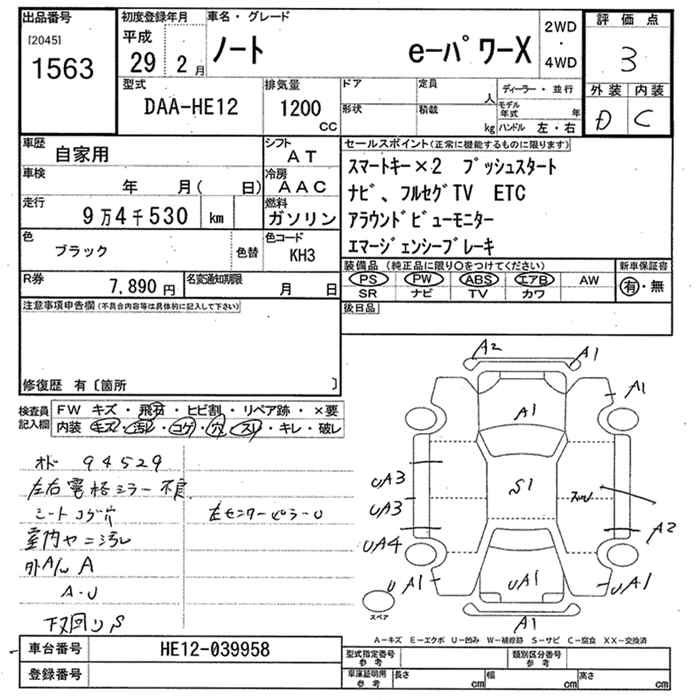 出品番号
[2045]
1563
初度登録年月
平成
29 2月
車名・グレード
ノート eーパワーX
2WD
・
4WD
評価点
3
外装 内装
D C
型式
DAA-HE12
排気量
1200
cc
ドア
定員
人
形状
積載
kg
ディーラー・並行
モデル年式 年
ハンドル 左・右
車歴
自家用
シフト
AT
車検
年 月( 日)
冷房
AAC
走行
9万4千530 km
燃料
ガソリン
色
ブラック
色替
色コード
KH3
R券
7,890円
名変通知期限
月 日
セールスポイント(正常に機能するものに限ります)
スマートキー×2 プッシュスタート
ナビ、フルセグTV ETC
アラウンドビューモニター
エマージェンシーブレーキ
装備品(純正品に限り○をつけてください)
PS PW ABS エアB AW
SR ナビ TV カワ
新車保証書
有・無
後日品
注意事項申告欄(不具合内容等は具体的に記入して下さい)
修復歴 有〔箇所 〕
検査員記入欄
FW キズ・飛石・ヒビ割・リペア跡・×要
内装 キズ・汚レ・コゲ・穴・スレ・キレ・破レ
オド 94529
左右電格ミラー不良
シートコゲ穴
左センターピラーU
室内ヤニ汚レ
外A/W A
A・U
下回りS
A2
A1
A1
A1
UA3
UA3
S1
UA4
A2
U
A1
UA1
UA1
A1
スペア
A-キズ E-エクボ U-凹み W-補修跡 S-サビ C-腐食 XX-交換済
車台番号
HE12-039958
登録番号
型式指定番号
参考
類別区分番号
参考
車庫証明用
参考
長さ cm
幅 cm
高さ cm